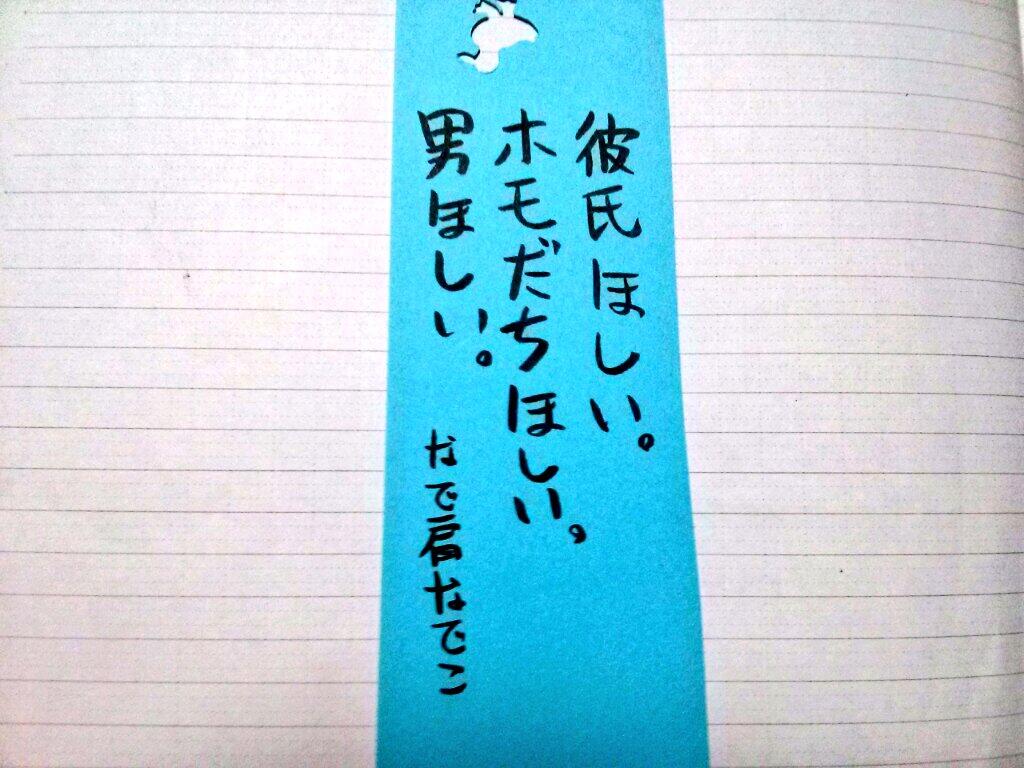 彼氏ほしい。
ホモだちほしい。
男ほしい。
なで肩なでこ